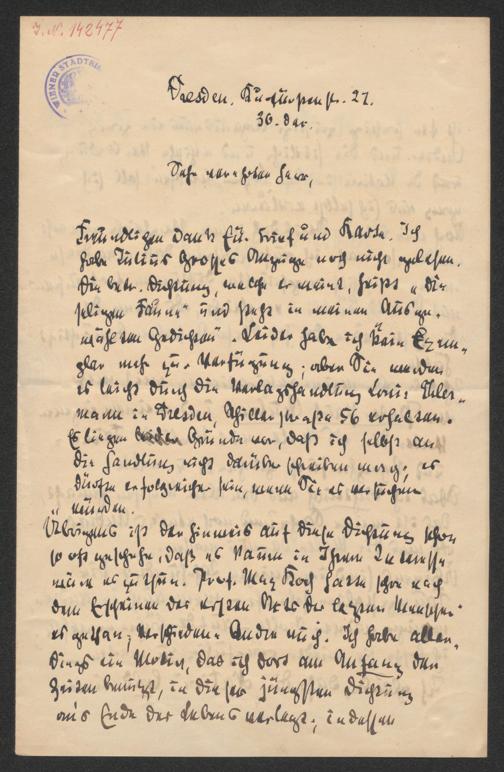 J. N. 142477
WIENER STADTBIB
Dresden, 27.
30. Dez.
Sehr verehrter Herr,
Freundlichen Dank für Brief und Karte. Ich
habe Julius Grosses Anzeige noch nicht gelesen.
Die betr. Dichtung, welche er meint, heißt „die
seligen Faune" und steht in meinen Ausge-
wählten Gedichten. Leider habe ich kein Exem-
plar mehr zur Verfügung; aber Sie werden
es leicht durch die Verlagshandlung Louis Ehler-
mann in Dresden, Schillerstraße 56 erhalten.
Es liegen Gründe vor, daß ich selbst an
die Handlung nicht darüber schreiben mag; es
dürfte erfolgreicher sein, wenn Sie es versuchen
würden.
Übrigens ist der Hinweis auf diese Dichtung schon
so oft geschehen, daß es kaum in Ihrem Interesse
wäre es zu thun. Prof. Max Koch hatte schon nach
dem Erscheinen des ersten Akts der letzten Menschen
es gethan; verschiedene Andre auch. Ich habe aller-
dings ein Motiv, das ich dort am Anfang der
Zeiten benutzt, in dieser jüngsten Dichtung
an's Ende des Lebens verlegt; indessen